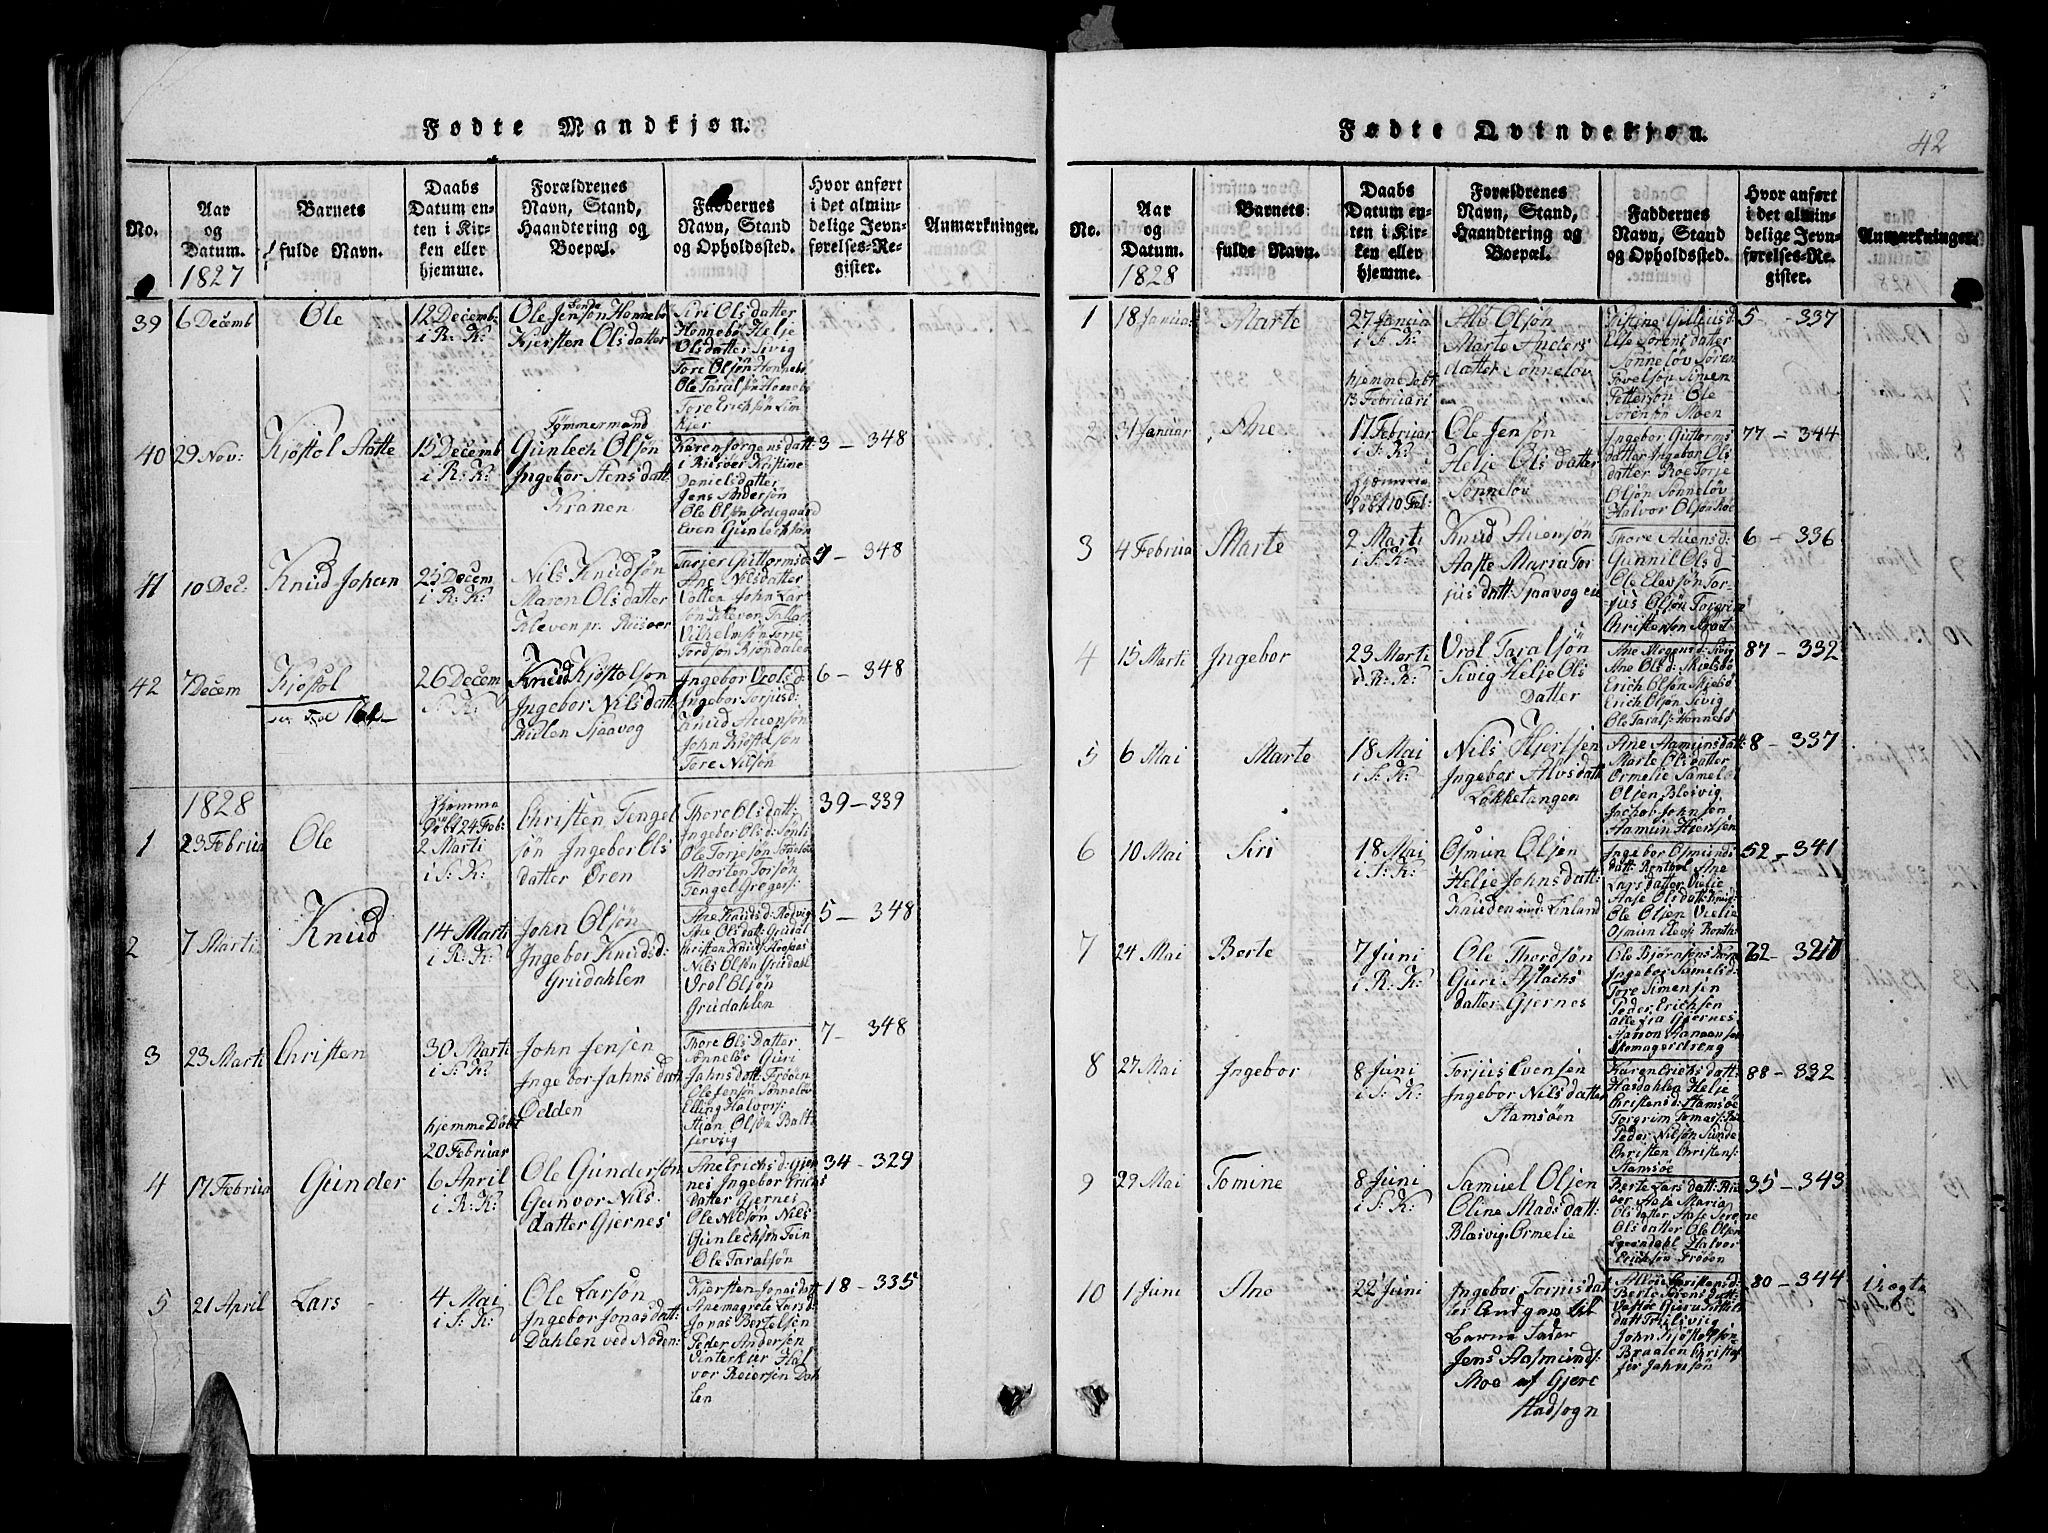 Fødte Mandkjøn.
No.
Aar
og
Datum.
1827
Barnets
fulde Navn.
Daabs
Datum en-
ten i Kir-
ken eller
hjemme.
Forældrenes
Navn, Stand,
Haandtering og
Boepæl.
Faddernes
Navn, Stand
og Opholdssted.
Hvor anført
i det almin-
delige Jevn-
førelses-Re-
gister.
Anmærkninger.
39
6 Decemb
Ole
12 Decemb
i R: K:
Ole Jensøn Honnebø
Kjersten Olsdatter
Siri Olsdatter
Honnebø Helje
Olsdatter Sivig
Tore Olsøn Honnebø
Ole Taralsøn Honnebø
Tore Erichsøn Lim
kjer
40
29 Nov:
Kjøstol Aatte
15 Decemb
i R: K:
Tømmermand
Gunlech Olsøn
Ingebor Aensdatt:
Kranen
Karen Jørgensdatt:
i Riisøer Kristine
Danielsdatter
Jens Andersøn
Ole Olsøn Ødegaard
Even Gunlechsøn
3 - 348
41
10 Dec:
Knud Johan
25 Decem
i R: K:
Nils Knudsøn
Maren Olsdatter
Kleven pr. Riisøer
Tarjer Guttormsd:
Ane Nilsdatter
John Lar
søn Kleven
Vilhelmsøn Torje
Tordsøn Rjøndalen
4 - 348
42
7 Decem
Kjøstol
26 Decem
S: K:
Knud Kjøstolsøn
Ingebor Nilsdatt:
Kielen Sjaavog
Ingebor Vrolsd:
Ingebor Torjusd:
Knud Auensøn
John Kjøstolsøn
Tore Nilsøn
6 - 348
1828
1
23 Februa
Ole
Hjemme
Døbt 24 Feb:
2 Marti
i S: K:
Christen Tengel
søn Ingebor Ols
datter Øren
Thore Olsdatt:
Ingebor Olsd: Sønl:
Ole Torjesøn Sønneløv
Morten Torsøn
Tengel Gregers:
39 - 339
2
7 Marti
Knud
14 Marti
i R: K:
John Olsøn
Ingebor Knudsd:
Grudahlen
Ane Knudsd: Rødvig
Ane Olsdatt: Grudal
Christen Knud
Nils Olsøn Grudahl
Vrol Olsøn
Grudahlen
5 - 348
3
23 Marti
Christen
30 Marti
i S: K:
John Jensen
Ingebor Jahnsdatt
Odden
Thore Olsdatter
Sønneløv Guri
Jahnsdatt: Frøøen
Ole Jensøn Sønneløv
Elling Halvors:
Stian Olsøn Balt
servig
7 - 348
4
17 Februa
Gunder
hjemme Døbt
20 Februar
6 April
i R: K:
Ole Gundersøn
Gunvor Nils
datter Gjernes
Ane Erichsd: Gjer
nes Ingebor Erichs
datter Gjernes
Ole Nilsøn Nils
Gunlechsøn Tein
Ole Taralsøn
34 - 329
5
21 April
Lars
4 Mai
i S: K:
Ole Larsøn
Ingebor Jonasdatt:
Dahlen ved Noden:
Kjersten Jonasdatt
Anemagrete Larsd:
Jonas Bertelsen
Peder Andersen
Vinterkier Hal
vor Reiersen Dah
len
18 - 335
Fødte Qvindekjøn.
42
No.
Aar
og
Datum.
1828
Barnets
fulde Navn.
Daabs
Datum en-
ten i Kir-
ken eller
hjemme.
Forældrenes
Navn, Stand,
Haandtering og
Boepæl.
Faddernes
Navn, Stand
og Opholdssted.
Hvor anført
i det almin-
delige Jevn-
førelses-Re-
gister.
Anmærkninger.
1
18 Januar
Marte
27 Janua
i S: K:
Ale Olsøn
Marte Anders
datter Sønneløv
Kistine Gilliusd:
Else Sørensdatter
Sønneløv Søren
Povelsøn Simen
Pettersøn Ole
Sørensøn Moen
5 - 337
2
31 Januar
Ane
hjemme Døbt
13 Februari
17 Februar
i S: K:
hjemme
Døbt 10 Feb:
Ole Jensøn
Helje Olsdatter
Sønneløv
Ingebor Guttorms
datter Ingebor Ols
datter Roe Torje
Olsøn Sønneløv
Halvor Olsøn Roe
77 - 344
3
4 Februa
Marte
2 Marti
i S: K:
Knud Auensøn
Aaste Maria Tor
jusdatt: Sjaavog eie
Thore Auensd:
Gunnil Olsd
Ole Elevsøn Tor-
jus Olsøn Torgrim
Christensøn
6 - 336
4
15 Marti
Ingebor
23 Marti
i R: K:
Vrol Taralsøn
Sivig Helje Ols
Datter
Ane Mogensd: Sivig
Ane Olsd: Mielsbø
Erich Olsøn Mjelsbø
Erich Olsøn Sivig
Ole Tarals: Honnebø
87 - 332
5
6 Mai
Marte
18 Mai
i S: K:
Nils Hjertsen
Ingebor Alvsdatt
Løkketangen
Ane Aamunsdatt:
Marte Olsdatter
Ormelie Samuel
Olsen Blesvig
Jochob Johnsen
Aamun Hjertsen
8 - 337
6
10 Mai
Siri
18 Mai
i S: K:
Osmun Olsen
Helje Johnsdatt:
Knuden
Ingebor Osmunds
datt: Ronthol Ane
Larsdatter Vielie
Aase Olsdatt:
Ole Olsen Vielie
Osmun Elevs: Ronth:
52 - 341
7
24 Mai
Berte
7 Juni
i R: K:
Ole Thordsøn
Guri Aslachs
datter Gjernes
Ole Bjørnsens
Ingebor Samelsd:
Tore Simensen
Peder Erichsen
alle fra Gjernes
Aanon Hansen
Skomagerdreng
62 -
8
27 Mai
Ingebor
8 Juni
i S: K:
Torjus Evensen
Ingebor Nilsdatter
Stamsøen
Karen Erichsdatt:
Hasdahlen Helje
Christensd: Stamsøe
Torgrim Tomas:
Peder Nilsøn Sunde
Christen Christens:
Stamsøe
88 - 332
9
29 Mai
Tomine
8 Juni
i S: K:
Samuel Olsen
Oline Madsdatt:
Blæsvig Ormelie
Berte Larsdatt:
Aase Maria
Olsdatter Aase Serene
Olsdatter Ole Olsen
Egrendahl Halvor
Erichsøn Frøøen
35 - 343
10
1 Juni
Ane
22 Juni
Ingebor Tomisdat
ter Angiven til
Barne Fader
Jens Aasmunds:
Moe af Gjere
stadsogn
Christensd:
Berte Sørensdatt:
datt:
John Kjøstolsøn
Braalen Christof
fer Jahnsøn
80 - 344